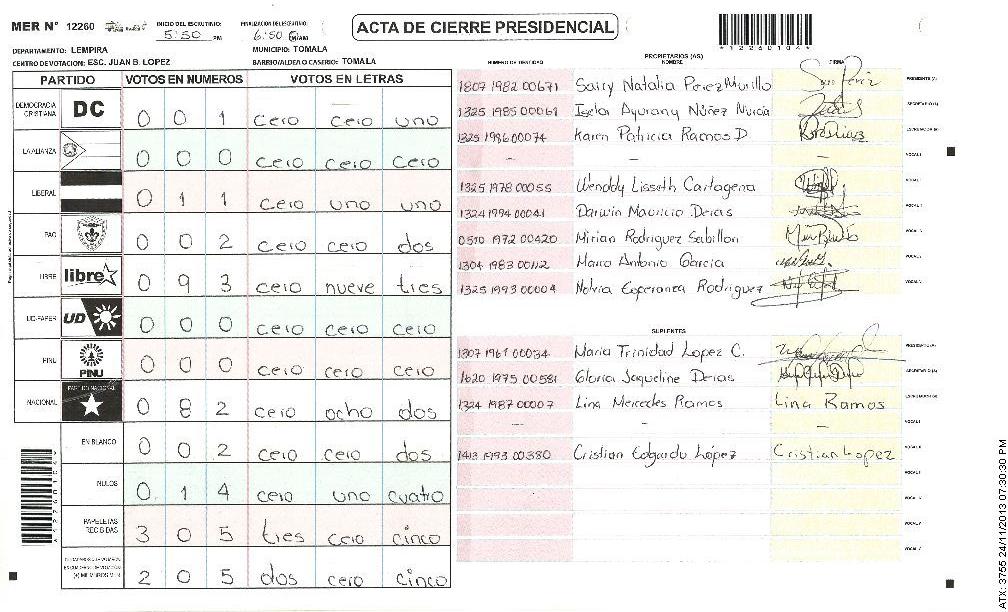 MER N° 12260
INICIO DEL ESCRUTINIO: 5:50 PM
FINALIZACION DEL ESCRUTINIO: 6:50
ACTA DE CIERRE PRESIDENCIAL
*12260104*
DEPARTAMENTO: LEMPIRA
MUNICIPIO: TOMALA
CENTRO DE VOTACION: ESC. JUAN B. LOPEZ
BARRIO/ALDEA O CASERIO: TOMALA
PARTIDO VOTOS EN NUMEROS VOTOS EN LETRAS
DEMOCRACIA CRISTIANA DC 0 0 1 cero cero uno
LA ALIANZA 0 0 0 cero cero cero
LIBERAL 0 1 1 cero uno uno
PAC 0 0 2 cero cero dos
LIBRE libre 0 9 3 cero nueve tres
UD-FAPER UD 0 0 0 cero cero cero
PINU PINU 0 0 0 cero cero cero
NACIONAL PARTIDO NACIONAL 0 8 2 cero ocho dos
EN BLANCO 0 0 2 cero cero dos
NULOS 0 1 4 cero uno cuatro
PAPELETAS RECIBIDAS 3 0 5 tres cero cinco
2 0 5 dos cero cinco
PROPIETARIOS (AS)
NUMERO DE IDENTIDAD NOMBRE FIRMA
1807 1982 00671 Sairy Natalia Perez Murillo PRESIDENTE (A)
1325 1985 00061 Isela Ayurany Núñez Murcia SECRETARIO (A)
1325 1986 00074 Karen Patricia Ramos D ESCRUTADOR (A)
– – – VOCAL I
1325 1978 00055 Wenddy Lisseth Cartagena
1324 1994 00041 Darwin Mauricio Deras
0510 1972 00420 Mirian Rodriguez Sabillon
1304 1983 00112 Marco Antonio Garcia
1325 1993 00004 Nolvia Esperanza Rodriguez
SUPLENTES
1307 1961 00034 Maria Trinidad Lopez C. PRESIDENTE (A)
1620 1975 00581 Gloria Jaqueline Deras SECRETARIO (A)
1324 1987 00007 Lina Mercedes Ramos Lina Ramos ESCRUTADOR (A)
– – – VOCAL I
1413 1993 00380 Cristian Edgardo López Cristian Lopez
ATX: 3755 24/11/2013 07:30:30 PM